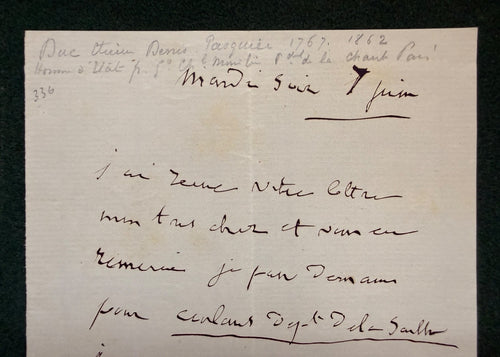 Duc Etienne Denis Pasquier 1767. 1862
Homme d'Etat p. Gd Ch. Ministre Pdt de la Chamb Pairs
336
Mardi soir 7 juin
j'ai reçue votre lettre
mon tres cher et vous en
remercie je pars demain
pour Coulans Dept De la Sarthe